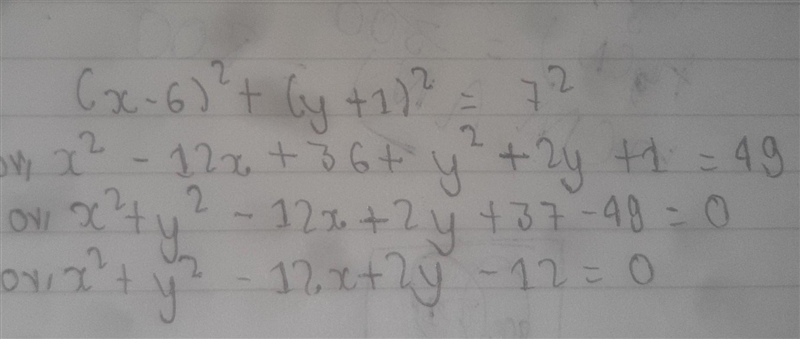 (x-6)² + (y+1)² = 7²
or, x² - 12x + 36 + y² + 2y + 1 = 49
or, x² + y² - 12x + 2y + 37 - 49 = 0
or, x² + y² - 12x + 2y - 12 = 0